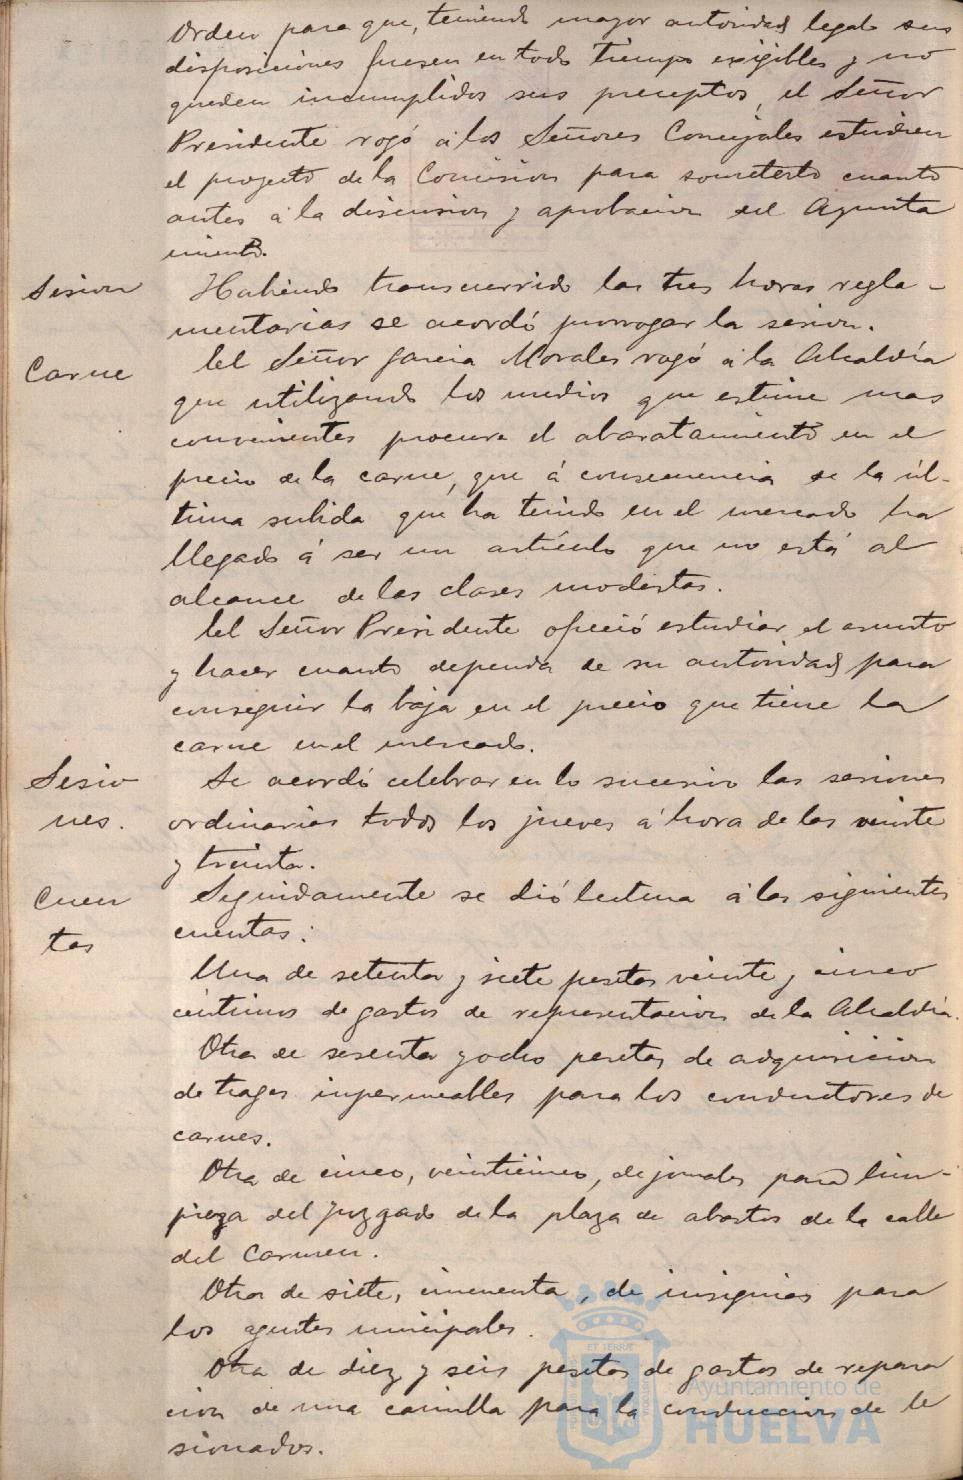 Orden para que, teniendo mayor autoridad legal sus
disposiciones fuesen en todo tiempo exigibles y no
queden incumplidos sus preceptos, el Señor
Presidente rogó á los Señores Concejales estudien
el proyecto de la Comision para someterlo cuanto
antes á la discusion y aprobacion del Ayunta
miento.
Sesion
Habiendo transcurrido las tres horas regla-
mentarias se acordó prorrogar la sesion.
Carne
El Señor Garcia Morales rogó á la Alcaldía
que utilizando los medios que estime mas
convenientes procure el abaratamiento en el
precio de la carne, que á consecuencia de la úl-
tima subida que ha tenido en el mercado ha
llegado á ser un artículo que no está al
alcance de las clases modestas.
El Señor Presidente ofreció estudiar el asunto
y hacer cuanto dependa de su autoridad para
conseguir la baja en el precio que tiene la
carne en el mercado.
Sesio
nes.
Se acordó celebrar en lo sucesivo las sesiones
ordinarias todos los jueves á hora de las veinte
y treinta.
Cuen
tas
Seguidamente se dió lectura á las siguientes
cuentas:
Una de setenta y siete pesetas veinte y cinco
céntimos de gastos de representacion de la Alcaldía.
Otra de sesenta y ocho pesetas de adquisicion
de trages impermeables para los conductores de
carnes.
Otra de cinco, veinticinco, de jornales para lim-
pieza del juzgado de la plaza de abastos de la calle
del Carmen.
Otra de siete, cincuenta, de insignias para
los agentes municipales.
Otra de diez y seis pesetas de gastos de repara
cion de una camilla para la conduccion de le
sionados.
Ayuntamiento de
HUELVA